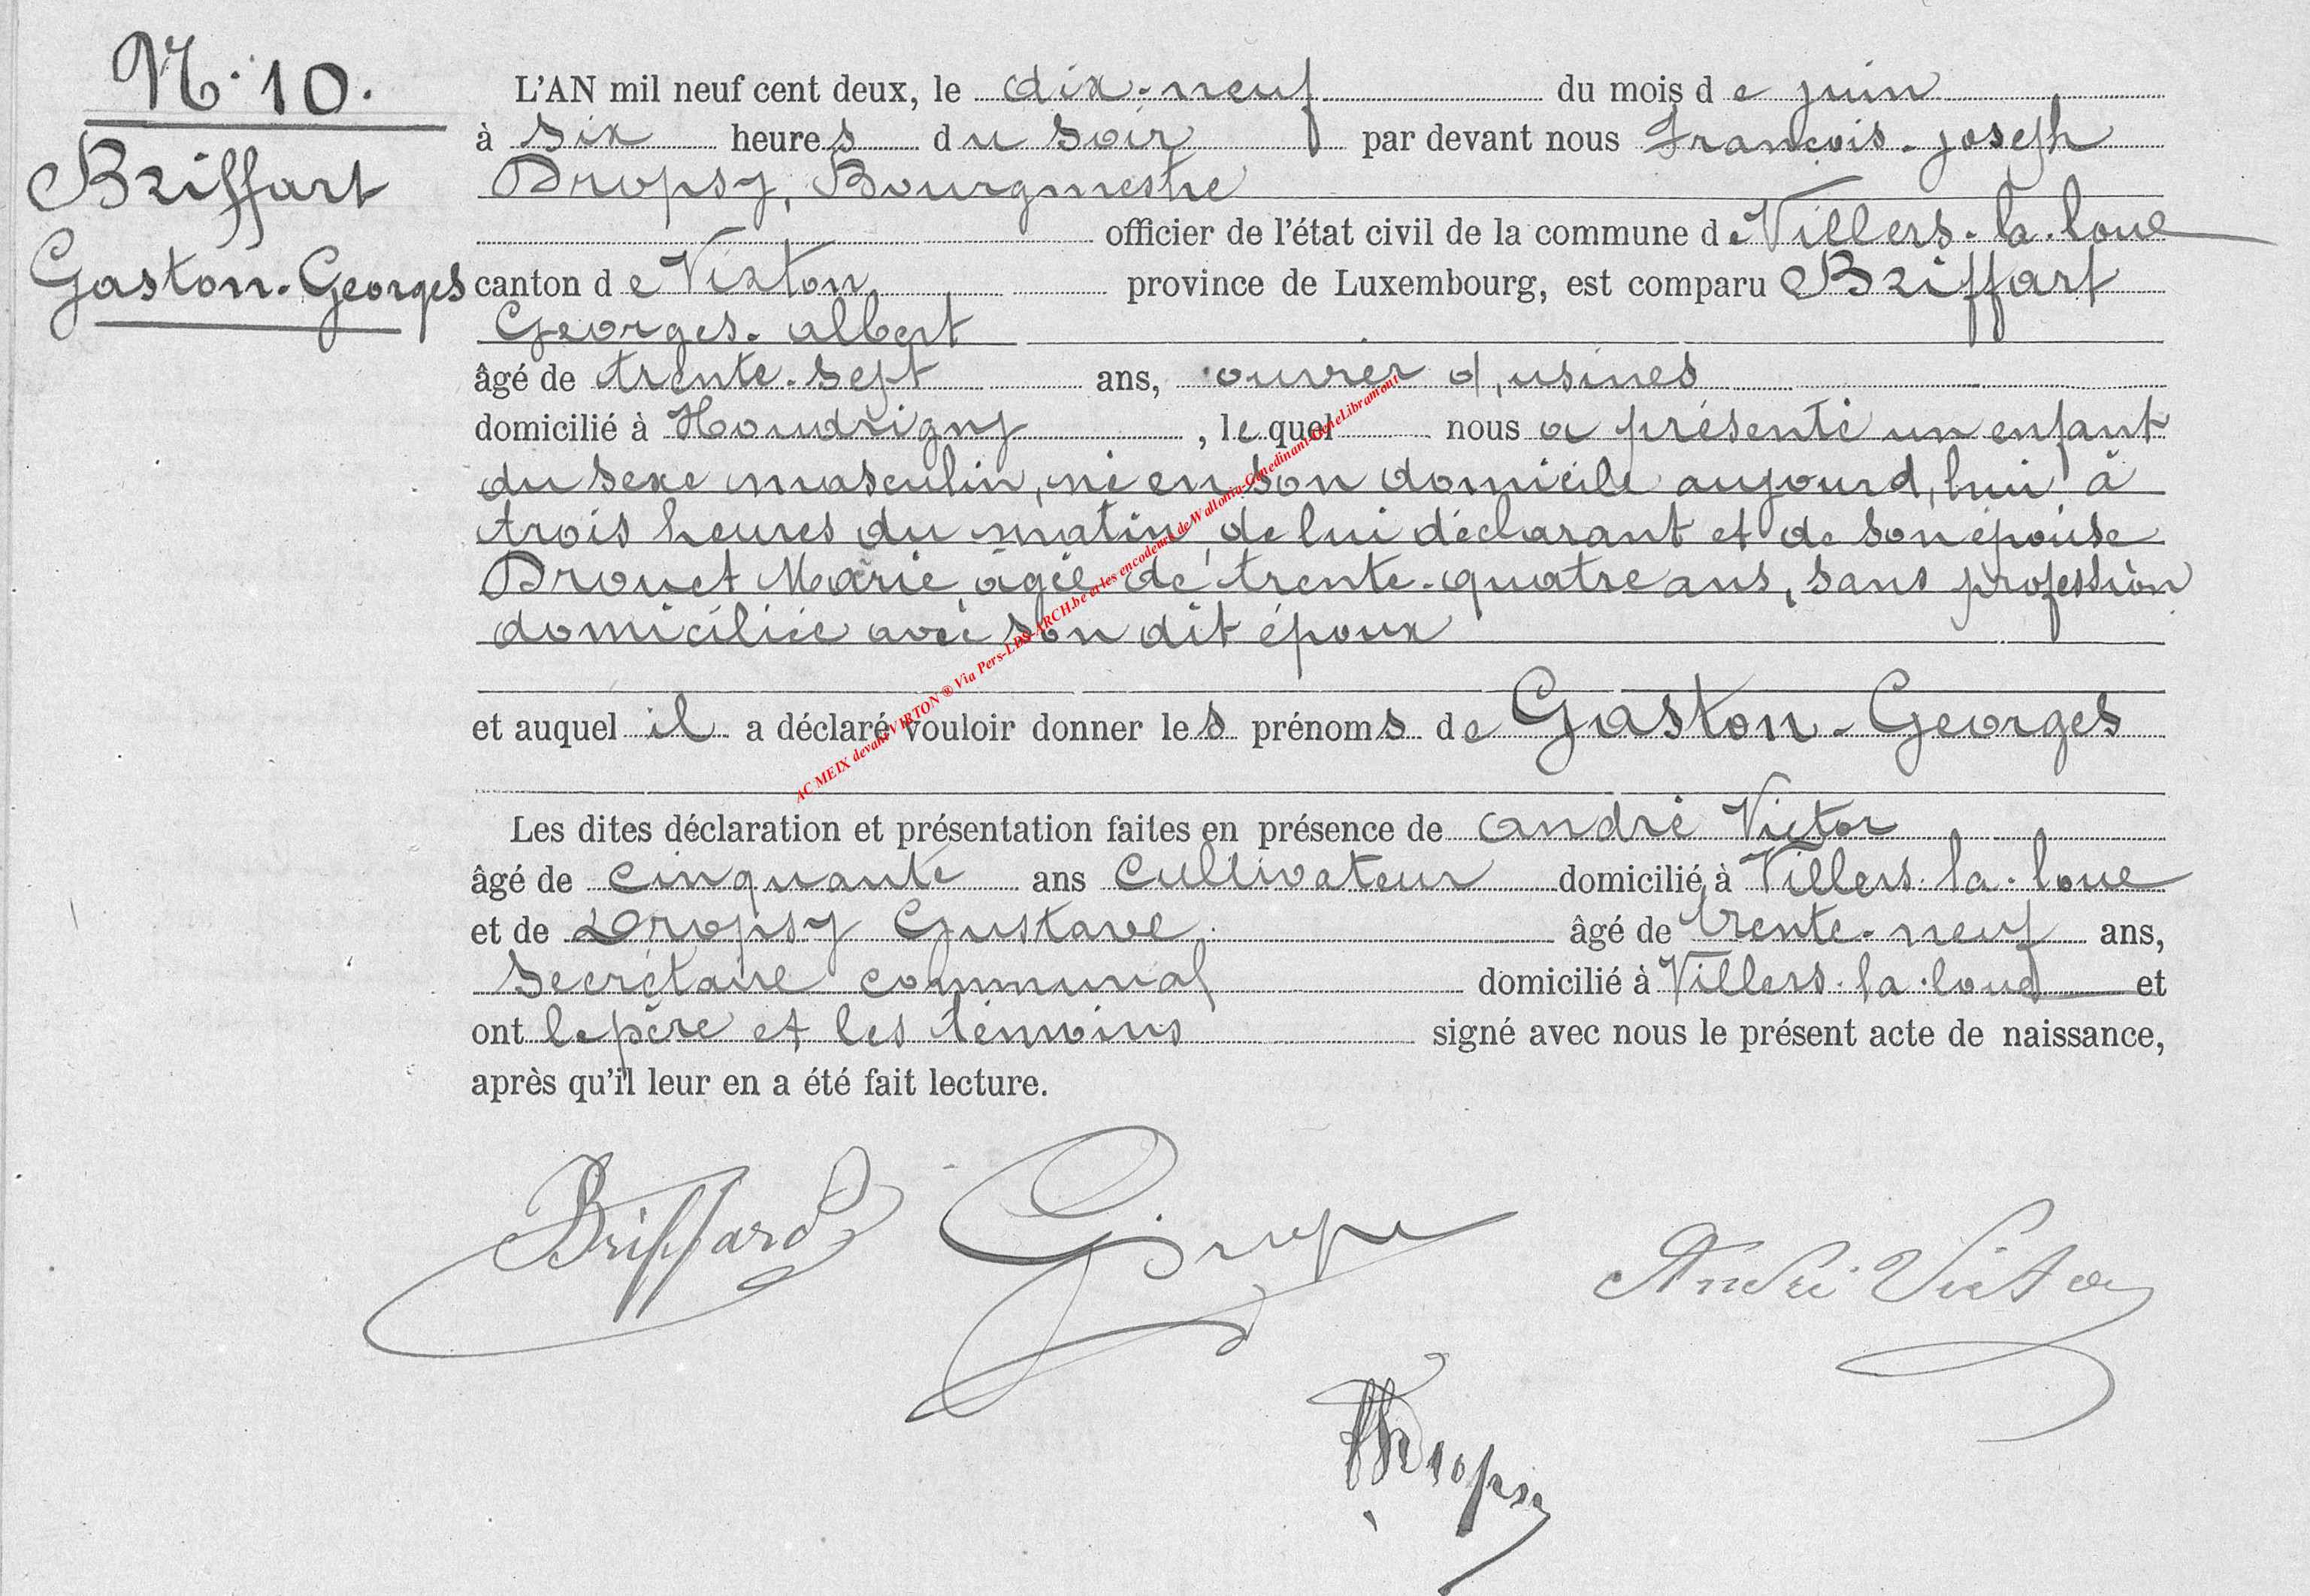 N. 10.
Briffart
Gaston-Georges
L'AN mil neuf cent deux, le dix-neuf du mois de juin
à six heures du soir par devant nous François-joseph
Dropsy, Bourgmestre
officier de l'état civil de la commune de Villers-la-loue
canton de Virton province de Luxembourg, est comparu Briffart
Georges-albert
âgé de trente-sept ans, ouvrier d'usines
domicilié à Houdrigny, lequel nous a présenté un enfant
du sexe masculin, né en son domicile aujourd'hui à
trois heures du matin, de lui déclarant et de son épouse
Drouet Marie, âgée de trente-quatre ans, sans profession
domiciliée avec son dit époux
et auquel il a déclaré vouloir donner les prénoms de Gaston-Georges
Les dites déclaration et présentation faites en présence de andré Victor
âgé de cinquante ans cultivateur domicilié à Villers-la-loue
et de Dropsy Gustave, âgé de trente-neuf ans,
secrétaire communal domicilié à Villers-la-loue et
ont le père et les témoins signé avec nous le présent acte de naissance,
après qu'il leur en a été fait lecture.
Briffard
André Victor
Dropsy
AC MEIX devant VIRTON ® Via Pers-LDS-ARCH.be et les encodeurs de Wallonia-Gènedinant-GeneLibramont